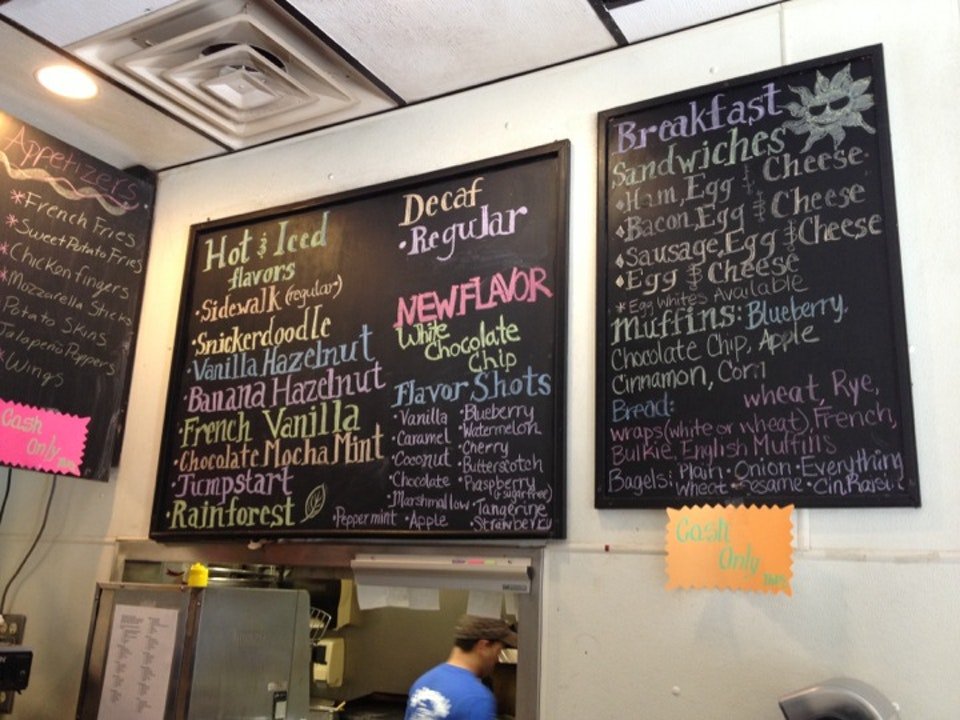 Appetizers
*French Fries
*Sweet Potato Fries
*Chicken fingers
*Mozzarella Sticks
Potato Skins
Jalapeño Peppers
*Wings
Cash
Only
Hot & Iced
flavors
•Sidewalk (regular)
•Snickerdoodle
•Vanilla Hazelnut
•Banana Hazelnut
•French Vanilla
•Chocolate Mocha Mint
•Jumpstart
•Rainforest
Decaf
•Regular
NEW FLAVOR
White
Chocolate
Chip
Flavor Shots
•Vanilla •Blueberry
•Caramel •Watermelon
•Coconut •Cherry
•Chocolate •Butterscotch
•Marshmallow •Raspberry
(+ sugarfree)
•Peppermint •Apple •Tangerine
•Strawberry
Breakfast
Sandwiches
Ham, Egg & Cheese
Bacon, Egg & Cheese
Sausage, Egg & Cheese
Egg & Cheese
*Egg Whites Available
Muffins: Blueberry,
Chocolate Chip, Apple
Cinnamon, Corn
Bread: wheat, Rye,
wraps (white or wheat), French,
Bulkie, English Muffins
Bagels: Plain • Onion • Everything
Wheat • Sesame • Cin. Raisin
Cash
Only